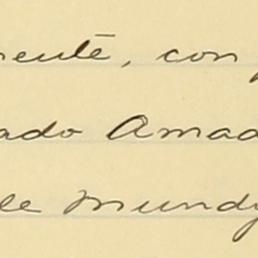 rente, con
ado Amad
le Mundy